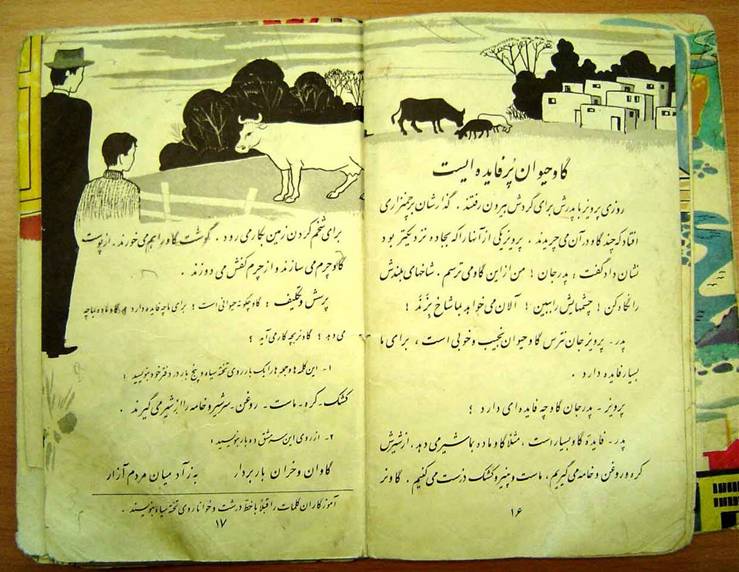 گاو حیوان پُر فایده ایست
روزی پرویز با پدرش برای گردش بیرون رفتند . گذارشان بچمنزاری
افتاد که چند گاو در آن می چریدند . پرویز یکی از آنها را که بجاده نزدیکتر بود
نشان داد گفت : پدر جان ! من از این گاو می ترسم ، شاخهای بلندش
را نگاه کن ! چشمهایش را ببین ! الان می خواهد ما را شاخ بزند !
پدر - پرویز جان نترس گاو حیوان نجیب و خوبی است ، برای ما
بسیار فایده دارد .
پرویز - پدر جان گاو چه فایده ای دارد ؟
پدر - فایدهٔ گاو بسیار است ، مثلاً گاو ماده بما شیر می دهد ، از شیرش
کره و روغن و خامه می گیریم ، ماست و پنیر و کشک درست می کنیم . گاو نر
۱۶
برای شخم کردن زمین بکار می رود . گوشت گاو را هم می خورند . از پوست
گاو چرم می سازند و از چرم کفش می دوزند .
پرسش و تکلیف : گاو چگونه حیوانی است ؟ برای ما چه فایده دارد ؟ گاو ماده بما چه
می دهد ؟ گاو نر بچه کار می آید ؟
۱- این کلمه ها و جمله ها را یک بار روی تخته سیاه و پنج بار در دفتر خود بنویسید :
کشک - کره - ماست - روغن - سرشیر و خامه را از شیر می گیرند .
۲- از روی این سرمشق ده بار بنویسید :
گاوان و خران بار بردار به ز آدمیان مردم آزار
آموزگاران کلمات را قبلاً با خطّ درشت و خوانا روی تخته سیاه بنویسند .
۱۷